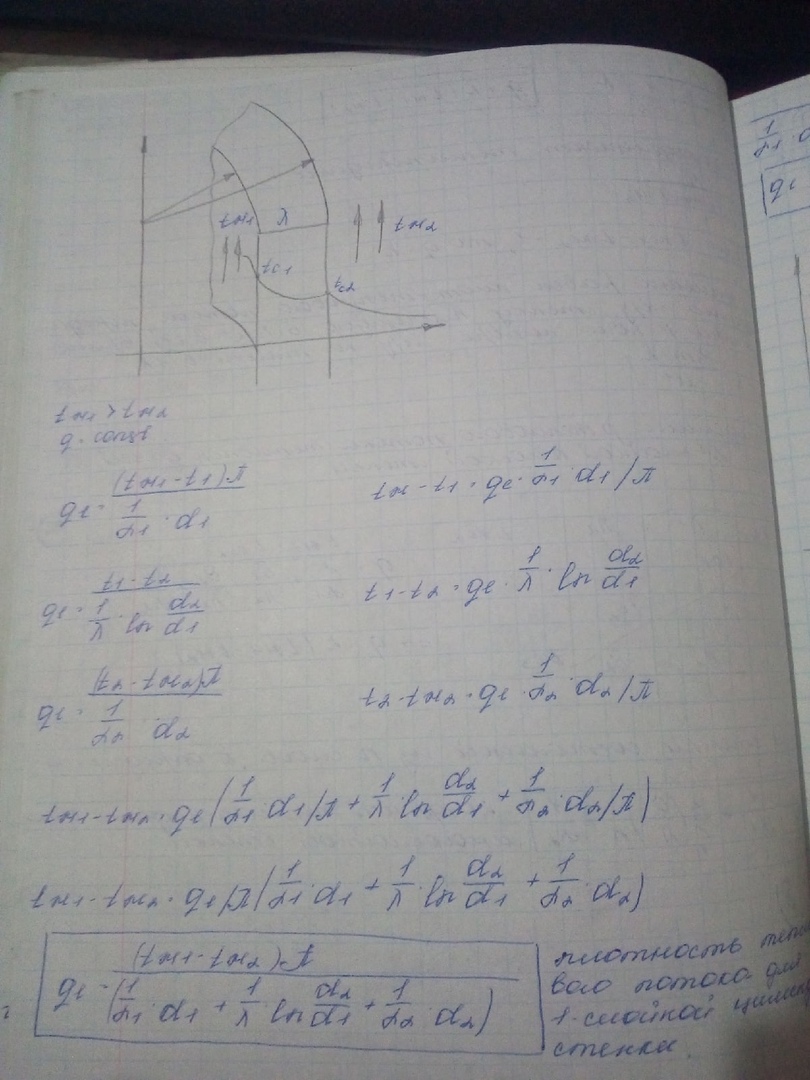 tж1 λ tж2
tc1 tc2
tж1 > tж2
q = const
qe = (tж1 - t1)·π / (1/α1 · d1)
tж - t1 = qe · 1/α1 · d1/π
qe = t1 - t2 / (1/λ · ln d2/d1)
t1 - t2 = qe · 1/λ · ln d2/d1
qe = (t2 - tж2)π / (1/α2 · d2)
t2 - tж2 = qe · 1/α2 · d2/π
tж1 - tж2 = qe (1/α1 · d1/π + 1/λ · ln d2/d1 + 1/α2 · d2/π)
tж1 - tж2 = qe/π (1/α1 · d1 + 1/λ · ln d2/d1 + 1/α2 · d2)
qe = (tж1 - tж2)·π / (1/α1 · d1 + 1/λ · ln d2/d1 + 1/α2 · d2)
плотность
вого потока для
1-слойной
стенки.